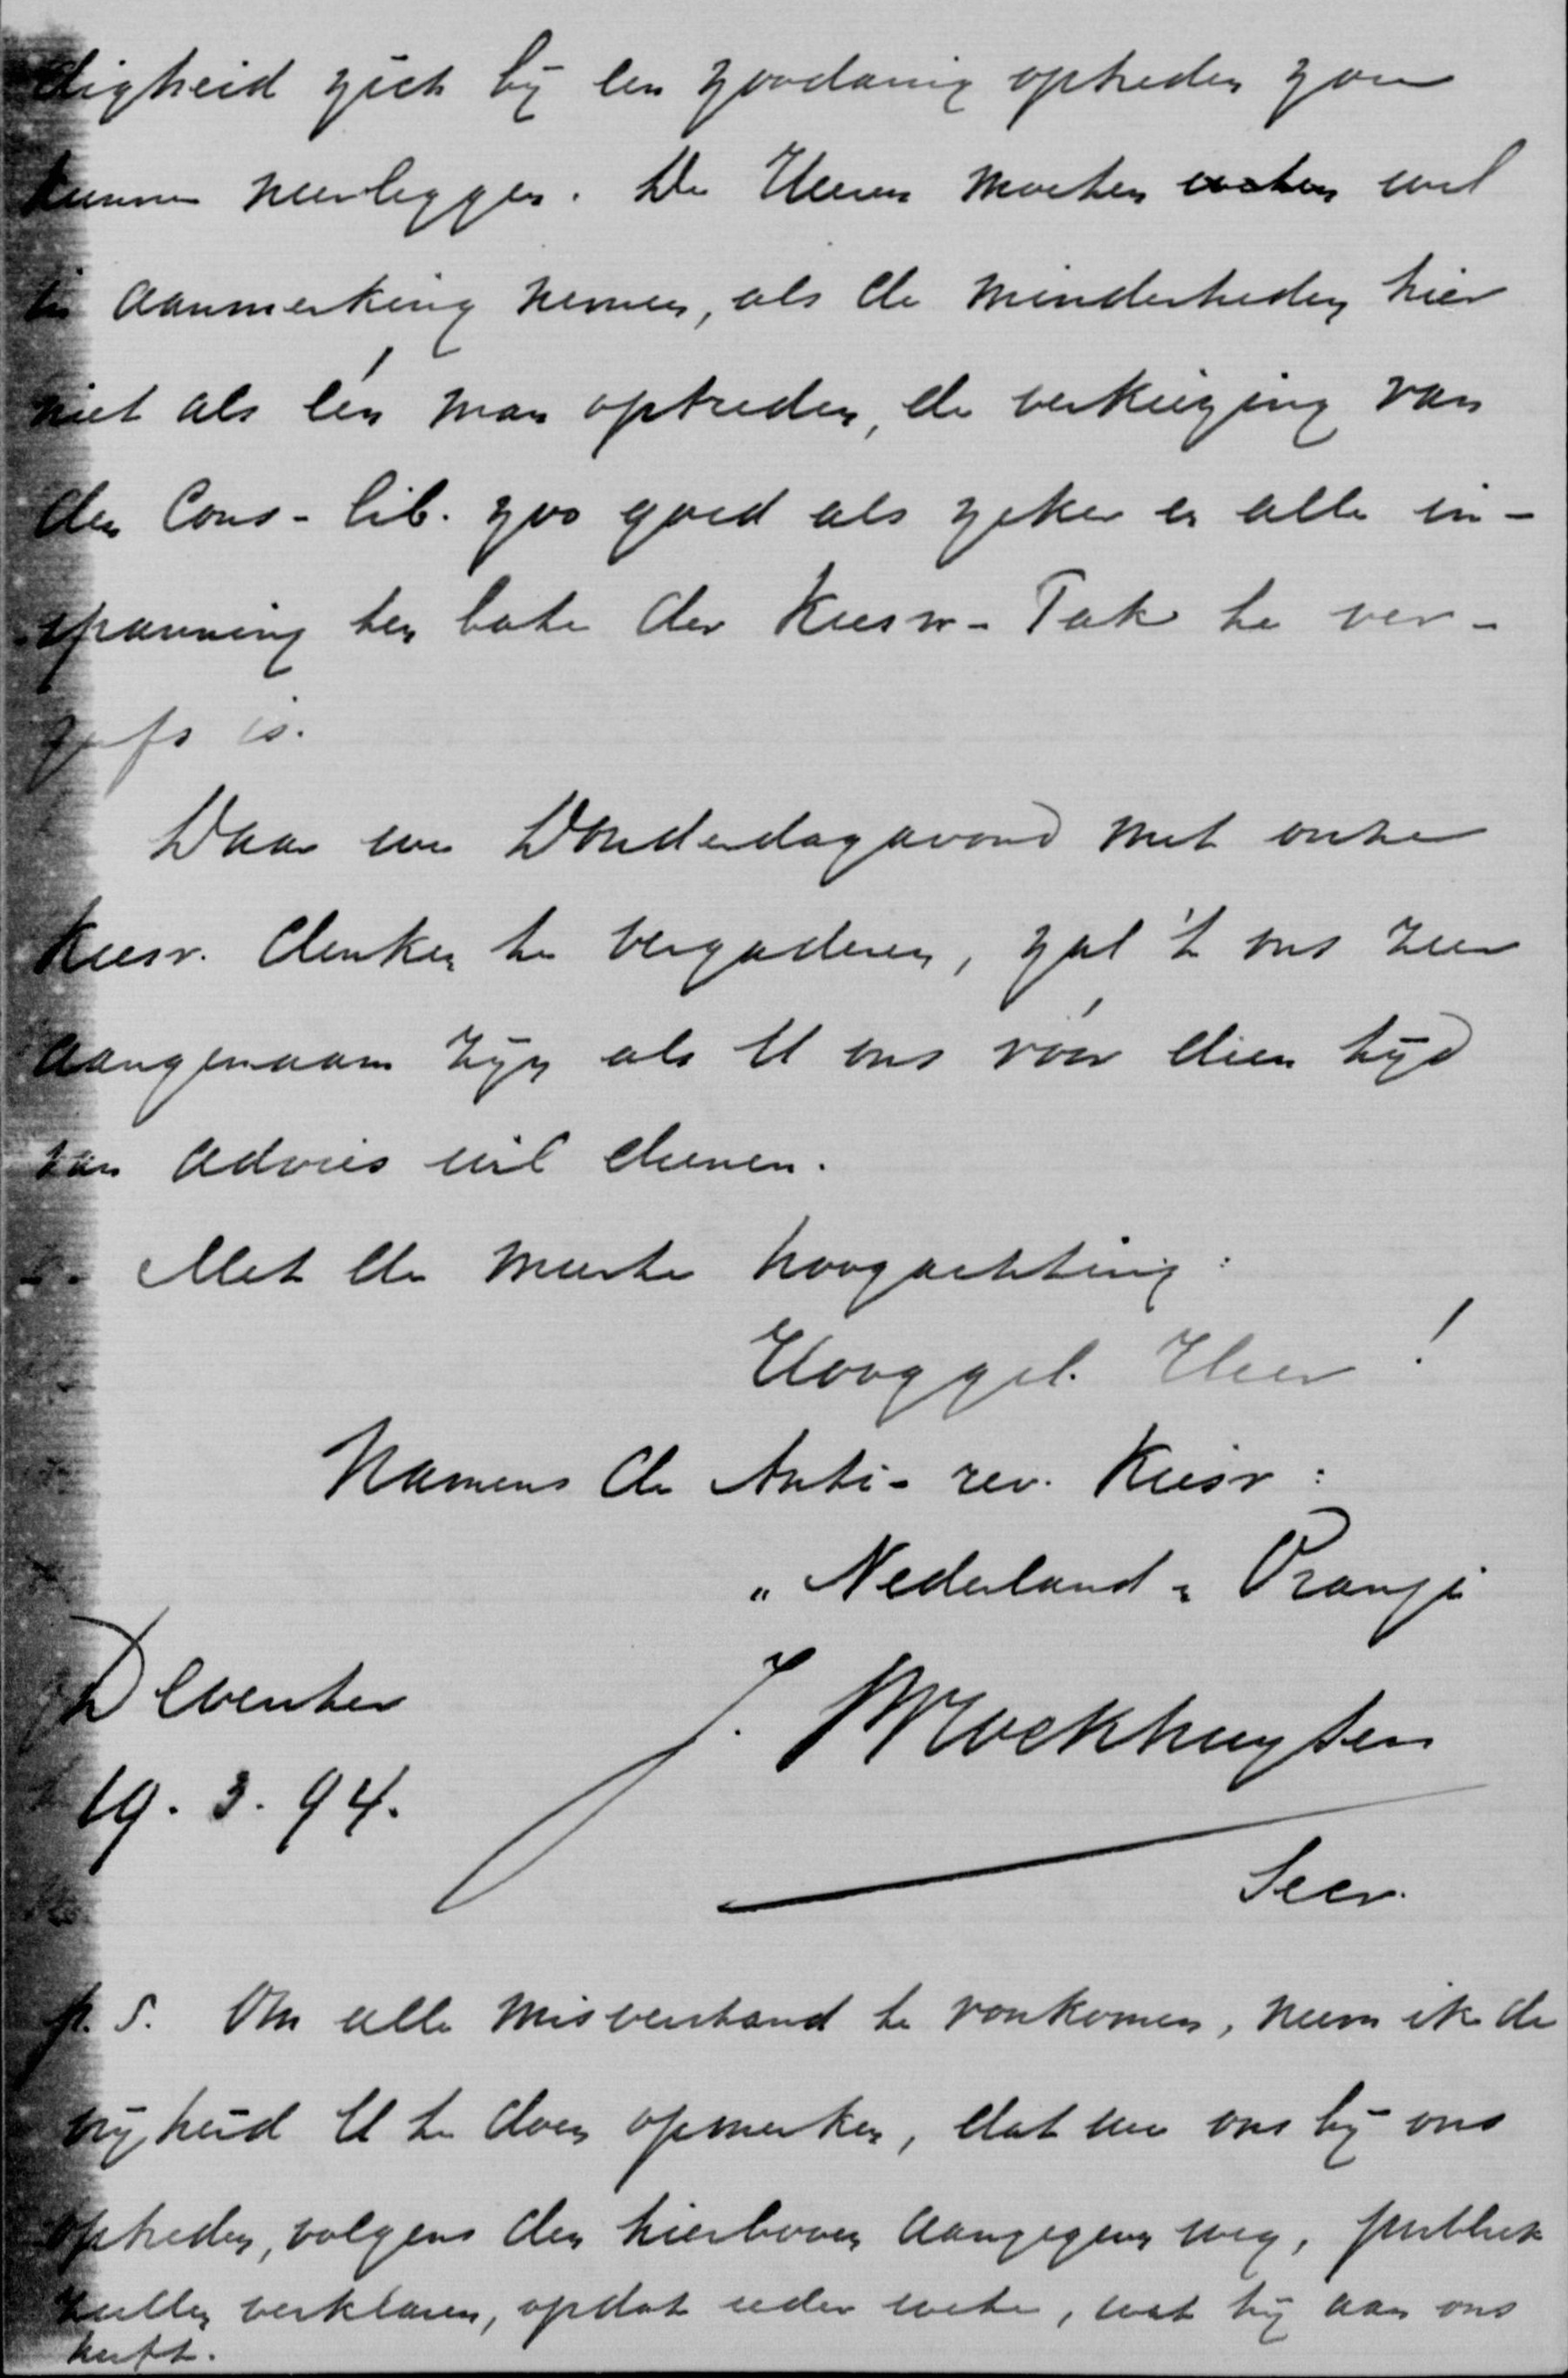 digheid zich bij een zoodanig optreden zou
kunnen neerleggen. De Heeren moeten weten wel
in aanmerking nemen, als de minderheden hier
niet als één man optreden, de verkiezing van
den Cons-lib. zoo goed als zeker en alle in-
spanning ten bate der Kiesw-Tak te ver-
geefs is.
Daar we Donderdagavond met onze
Kiesv. denken te vergaderen, zal 't ons zeer
aangenaam zijn als U ons vóór dien tijd
van advies wil dienen.
Met de meeste hoogachting:
Hooggel. Heer!
Namens de Anti-rev. Kiesv:
"Nederland en Oranje
Deventer
19.3.94.
Secr.
p.s. Om alle misverstand te voorkomen, neem ik de
vrijheid U te doen opmerken, dat we ons bij ons
optreden, volgens den hierboven aangegeven weg, publiek
zullen verklaren, opdat ieder wete, wat hij aan ons
heeft.